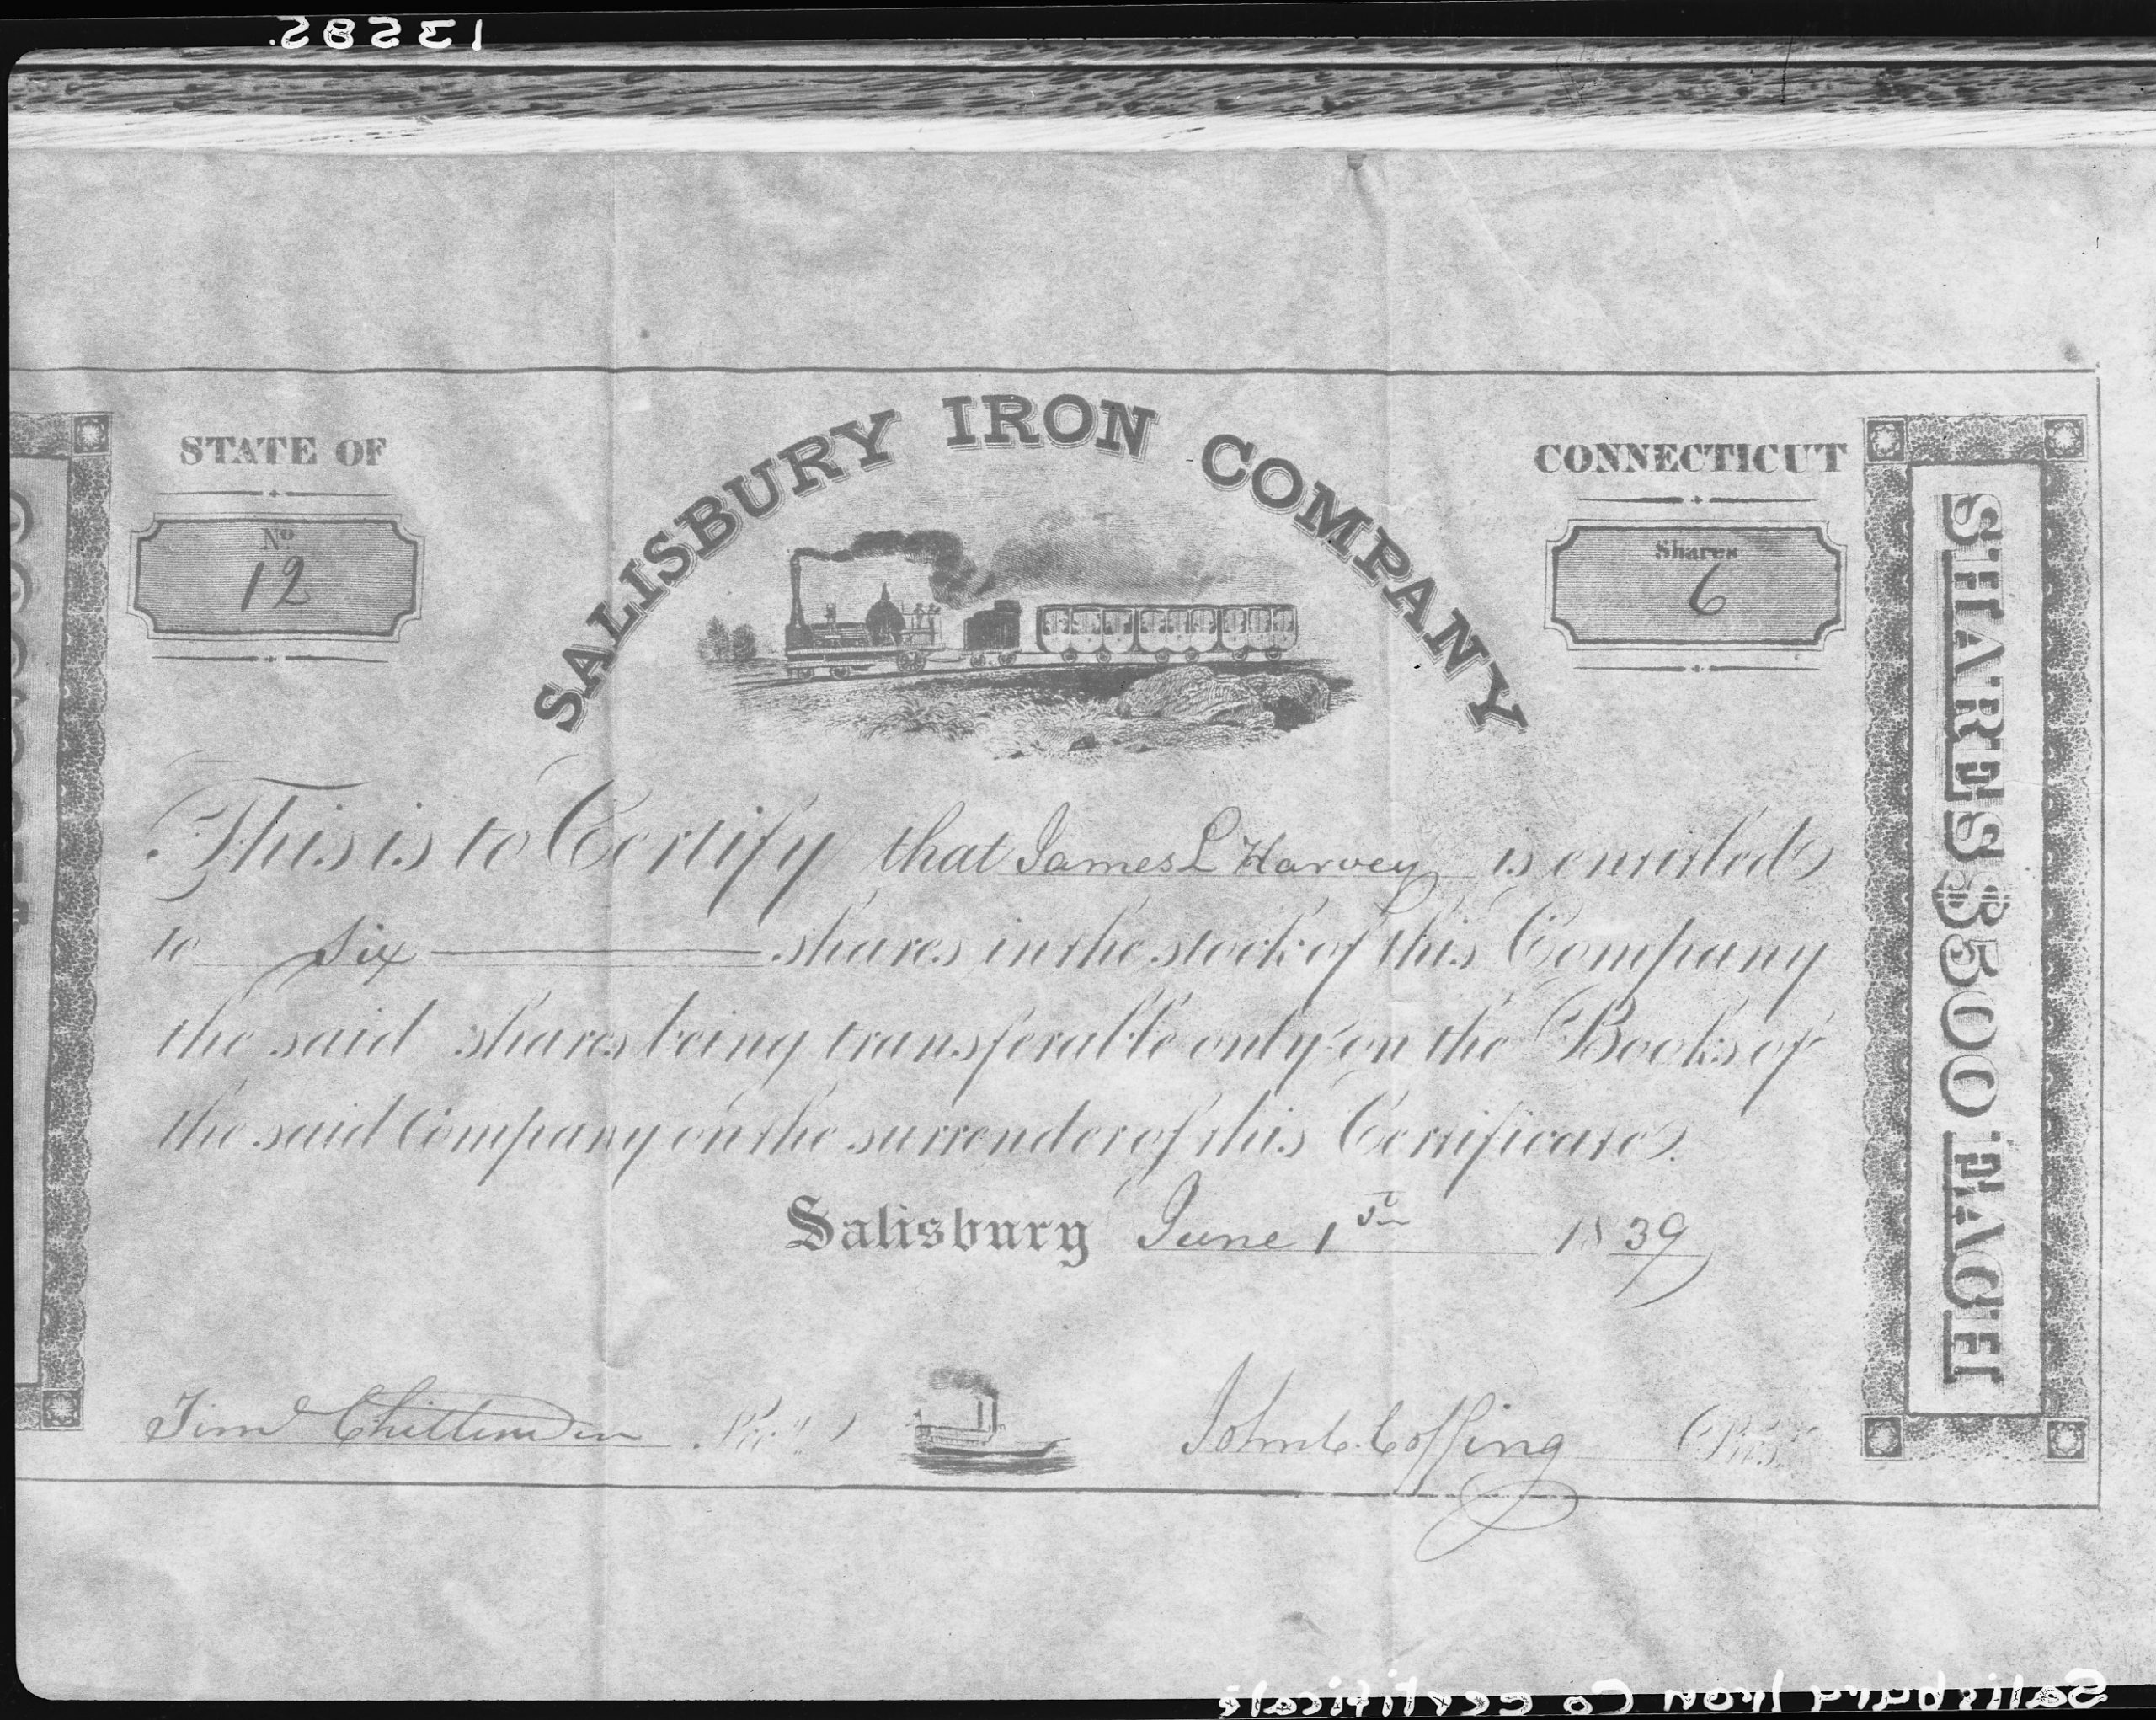 13585.
STATE OF
SALISBURY IRON COMPANY
CONNECTICUT
No
12
Shares
6
SHARES $500 EACH
This is to Certify that James L Harvey is entitled
to six shares in the stock of this Company
the said shares being transferable only on the Books of
the said Company on the surrender of this Certificate.
Salisbury June 1st 1839
Tim Chittenden Secy
John C. Coffing Prest
Salisbury Iron Co certificate